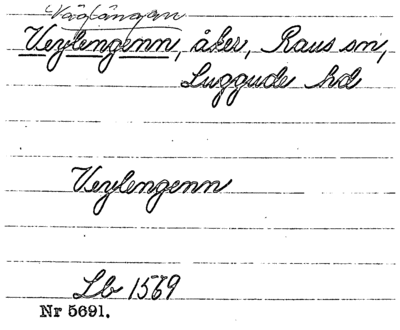 Väglängan
Veylengenn, åker, Raus sn,
Luggude hd
Veylengenn
Lb 1569
Nr 5691.